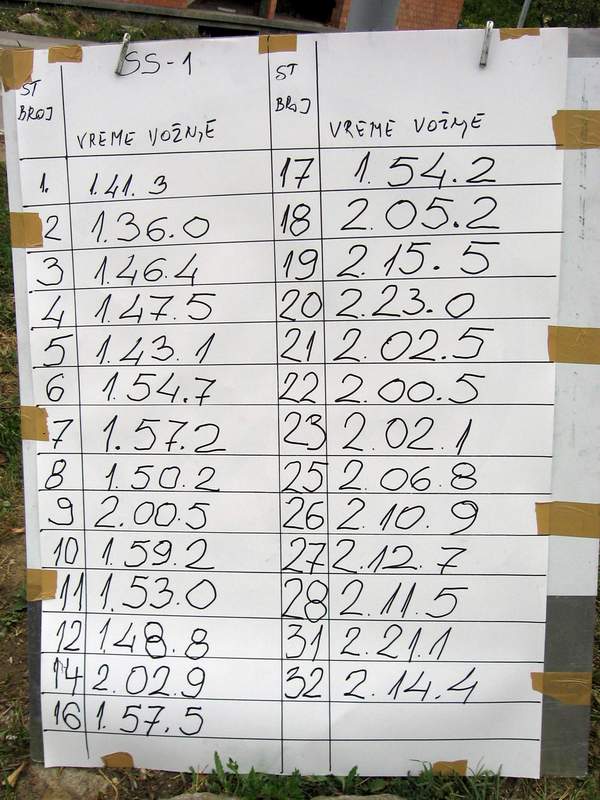 SS-1
ST BROJ VREME VOŽNJE
1. 1.41.3
2 1.36.0
3 1.46.4
4 1.47.5
5 1.43.1
6 1.54.7
7 1.57.2
8 1.50.2
9 2.00.5
10 1.59.2
11 1.53.0
12 1.48.8
14 2.02.9
16 1.57.5
ST BROJ VREME VOŽNJE
17 1.54.2
18 2.05.2
19 2.15.5
20 2.23.0
21 2.02.5
22 2.00.5
23 2.02.1
25 2.06.8
26 2.10.9
27 2.12.7
28 2.11.5
31 2.21.1
32 2.14.4